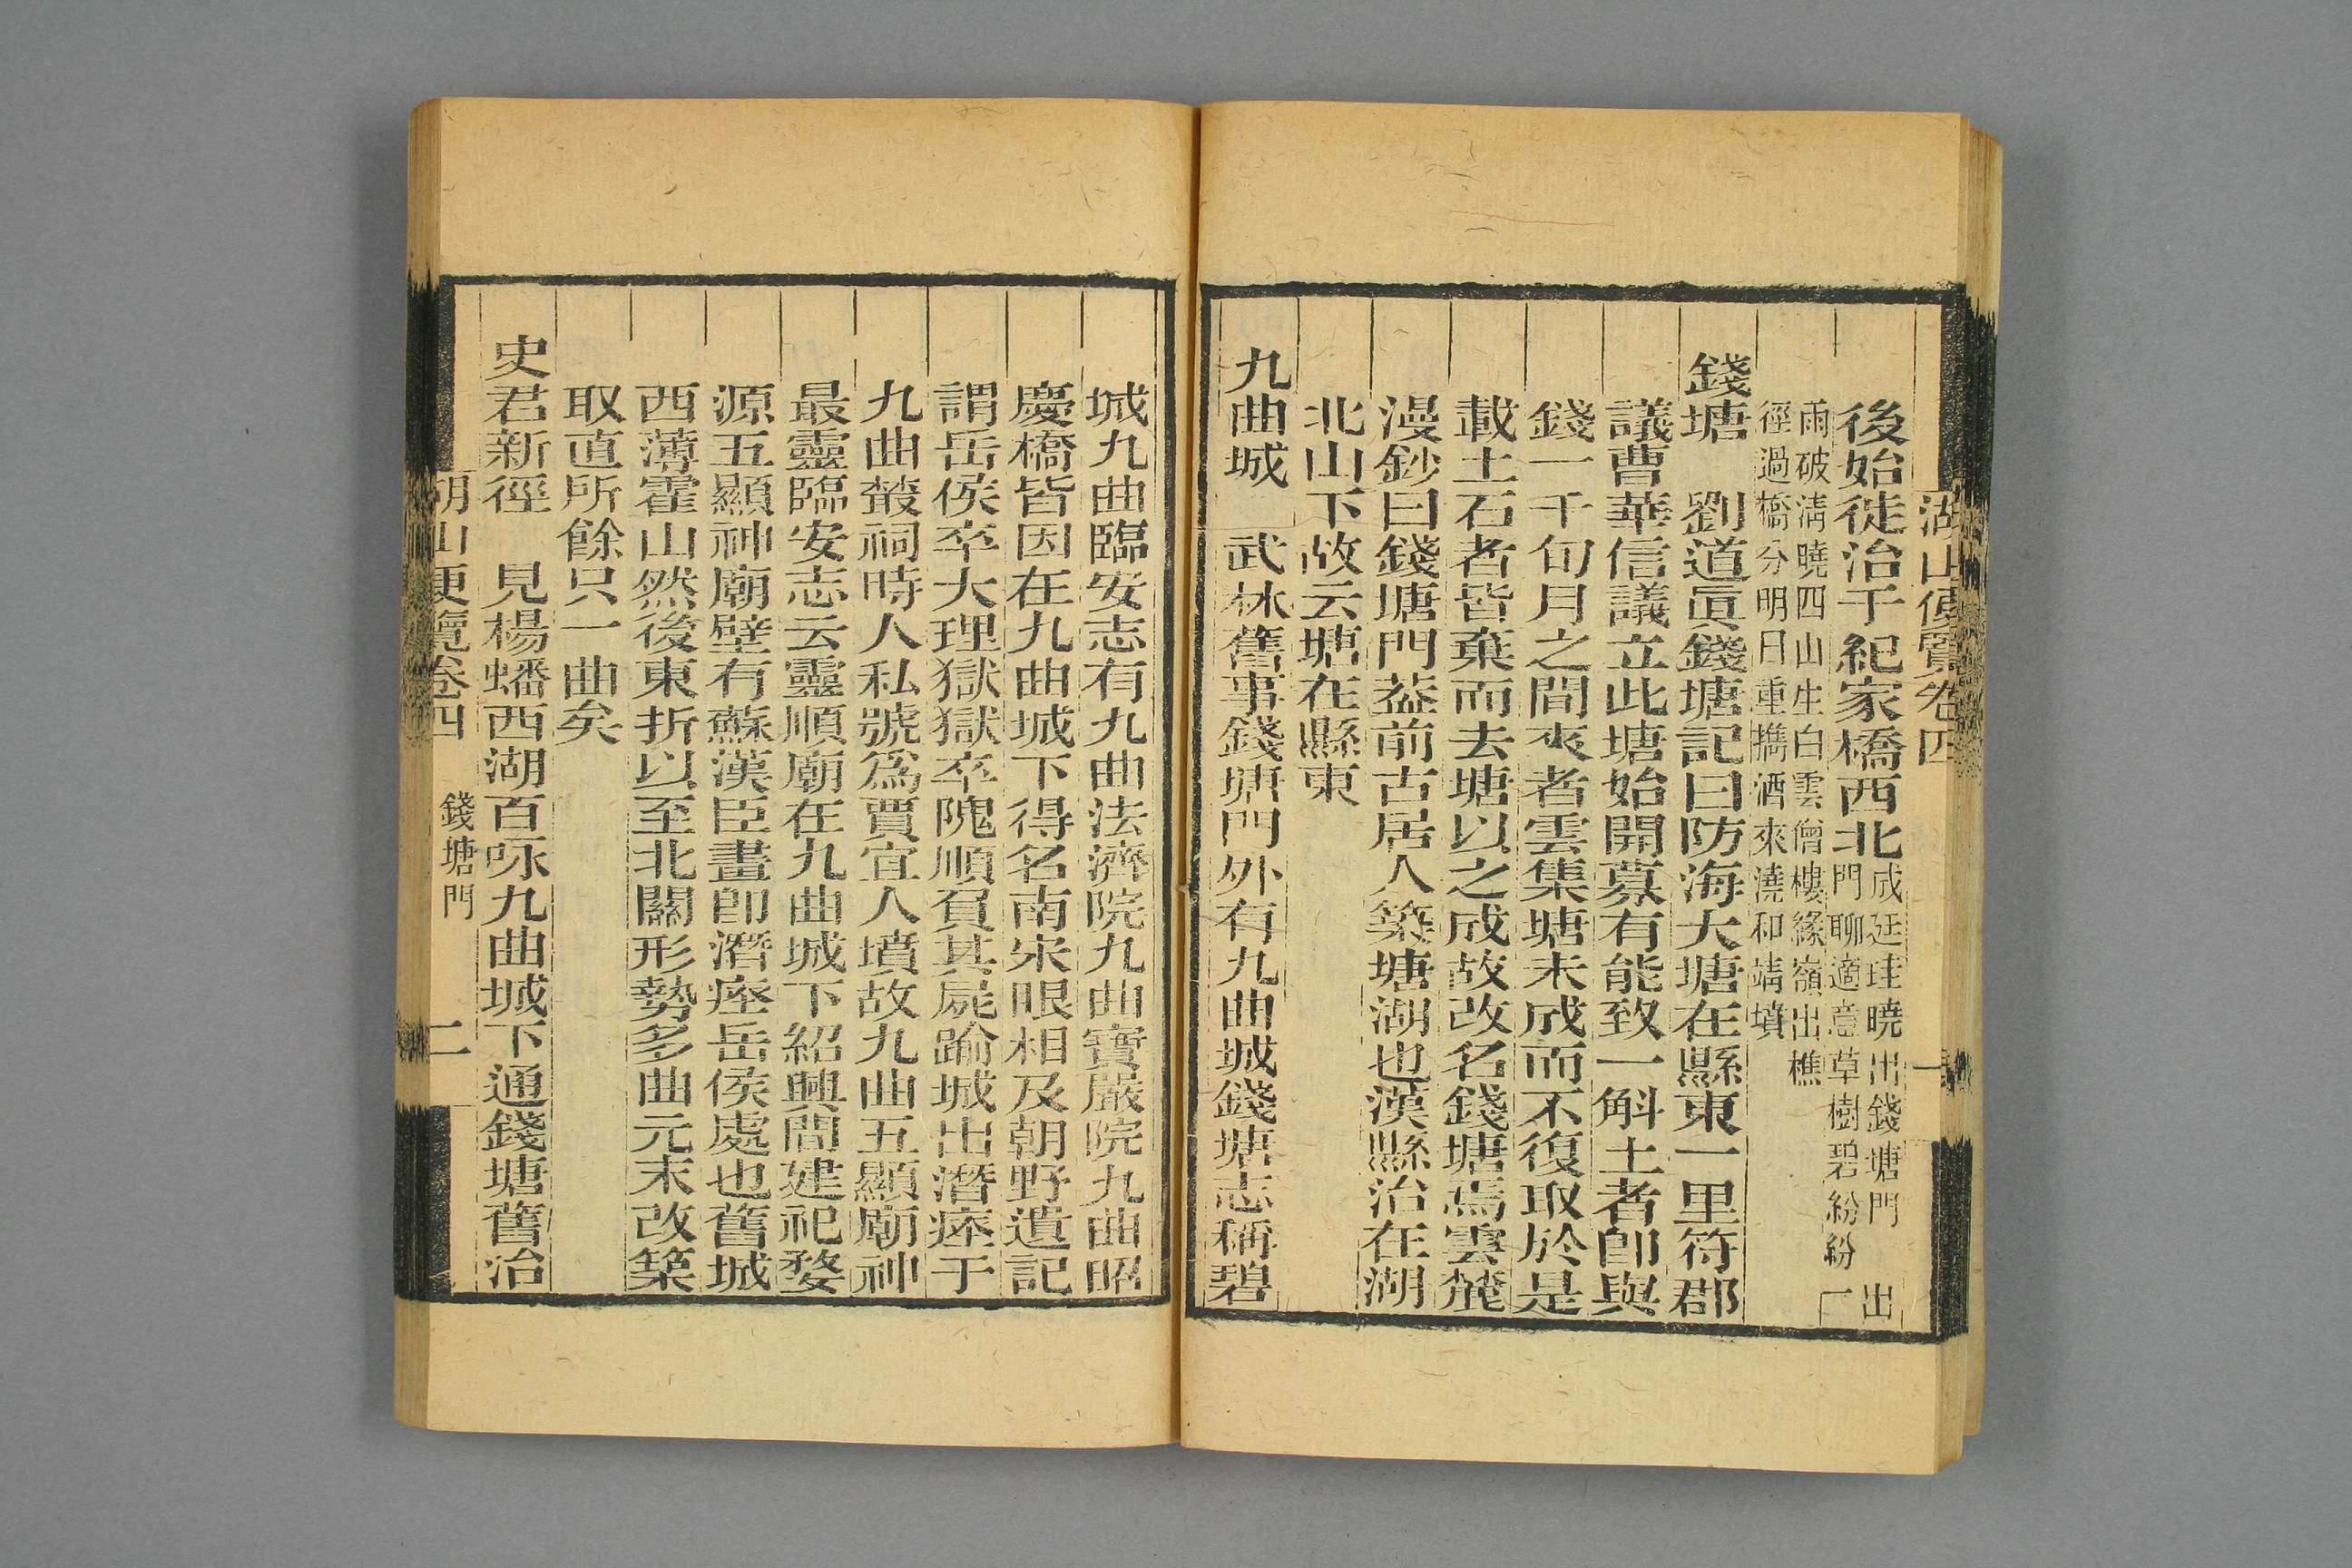 湖山便覽卷四 一
後始徙治于紀家橋西北成廷珪曉出錢塘門 出
門聊適意草樹碧紛紛一
雨破清曉四山生白雲僧樓緣嶺出樵
徑過橋分明日重擕酒來澆和靖墳
錢塘 劉道眞錢塘記曰防海大塘在縣東一里符郡
議曹華信議立此塘始開募有能致一斛土者卽與
錢一千旬月之間來者雲集塘未成而不復取於是
載土石者皆棄而去塘以之成故改名錢塘焉雲麓
漫鈔曰錢塘門葢前古居人築塘湖也漢縣治在湖
北山下故云塘在縣東
九曲城 武林舊事錢塘門外有九曲城錢塘志稱碧
城九曲臨安志有九曲法濟院九曲寶嚴院九曲昭
慶橋皆因在九曲城下得名南宋眼相及朝野遺記
謂岳侯卒大理獄獄卒隗順負其屍踰城出潛瘞于
九曲叢祠時人私號爲賈宜人墳故九曲五顯廟神
最靈臨安志云靈順廟在九曲城下紹興間建祀婺
源五顯神廟壁有蘇漢臣畫卽潛瘞岳侯處也舊城
西薄霍山然後東折以至北關形勢多曲元末改築
取直所餘只一曲矣
史君新徑 見楊蟠西湖百咏九曲城下通錢塘舊治
湖山便覽卷四 錢塘門 二